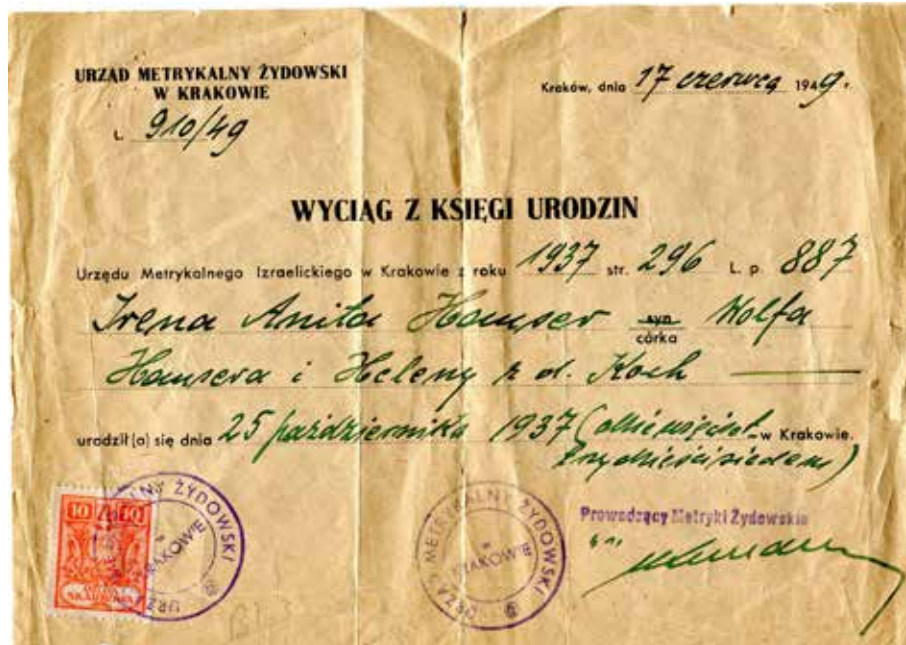 URZĄD METRYKALNY ŻYDOWSKI
W KRAKOWIE
L. 910/49
Kraków, dnia 17 czerwca 1949.
WYCIĄG Z KSIĘGI URODZIN
Urzędu Metrykalnego Izraelickiego w Krakowie z roku 1937 str. 296 L. p. 887
Irena Anita Hamser syn Wolfa
córka
Hamsera i Heleny z d. Koch
urodził(a) się dnia 25 października 1937 ( w Krakowie.
trzydzieści siedem)
10 10
SKARBOWA
URZĄD METRYKALNY ŻYDOWSKI
w
KRAKOWIE
URZĄD METRYKALNY ŻYDOWSKI
w
KRAKOWIE
Prowadzący Metryki Żydowskie